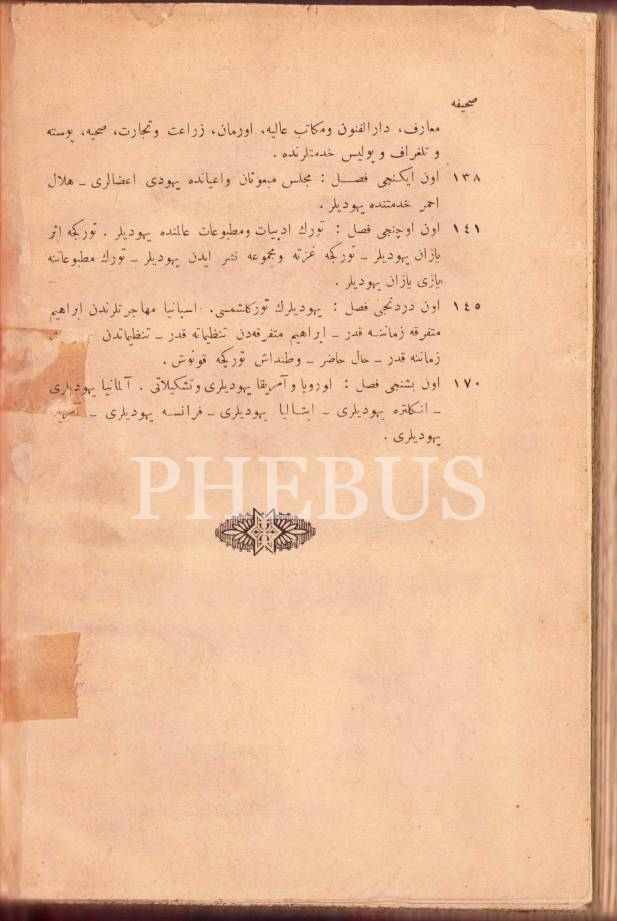 صحیفه
معارف، دارالفنون ومكاتب عالیه، اورمان، زراعت وتجارت، صحیه، پوسته
و تلغراف و پولیس خدمتلرنده .
١٣٨ اون ایكنجی فصل : مجلس مبعوثان واعیانده یهودی اعضالری ـ هلال
احمر خدمتنده یهودیلر .
١٤١ اون اوچنجی فصل : تورك ادبیات ومطبوعات عالمنده یهودیلر . توركجه اثر
یازان یهودیلر ـ توركجه غزته ومجموعه نشر ایدن یهودیلر ـ تورك مطبوعاتنه
یازی یازان یهودیلر .
١٤٥ اون دردنجی فصل : یهودیلرك توركلشمسی. اسپانیا مهاجرتلرندن ابراهیم
متفرقه زماننه قدر ـ ابراهیم متفرقه‌دن تنظیماته قدر ـ تنظیماتدن
زماننه قدر ـ حال حاضر ـ وطنداش توركجه قونوش .
١٧٠ اون بشنجی فصل : اوروپا وآمریقا یهودیلری وتشكیلاتی . آلمانیا یهودیلری
ـ انكلتره یهودیلری ـ ایتالیا یهودیلری ـ فرانسه یهودیلری ـ
یهودیلری .
PHEBUS